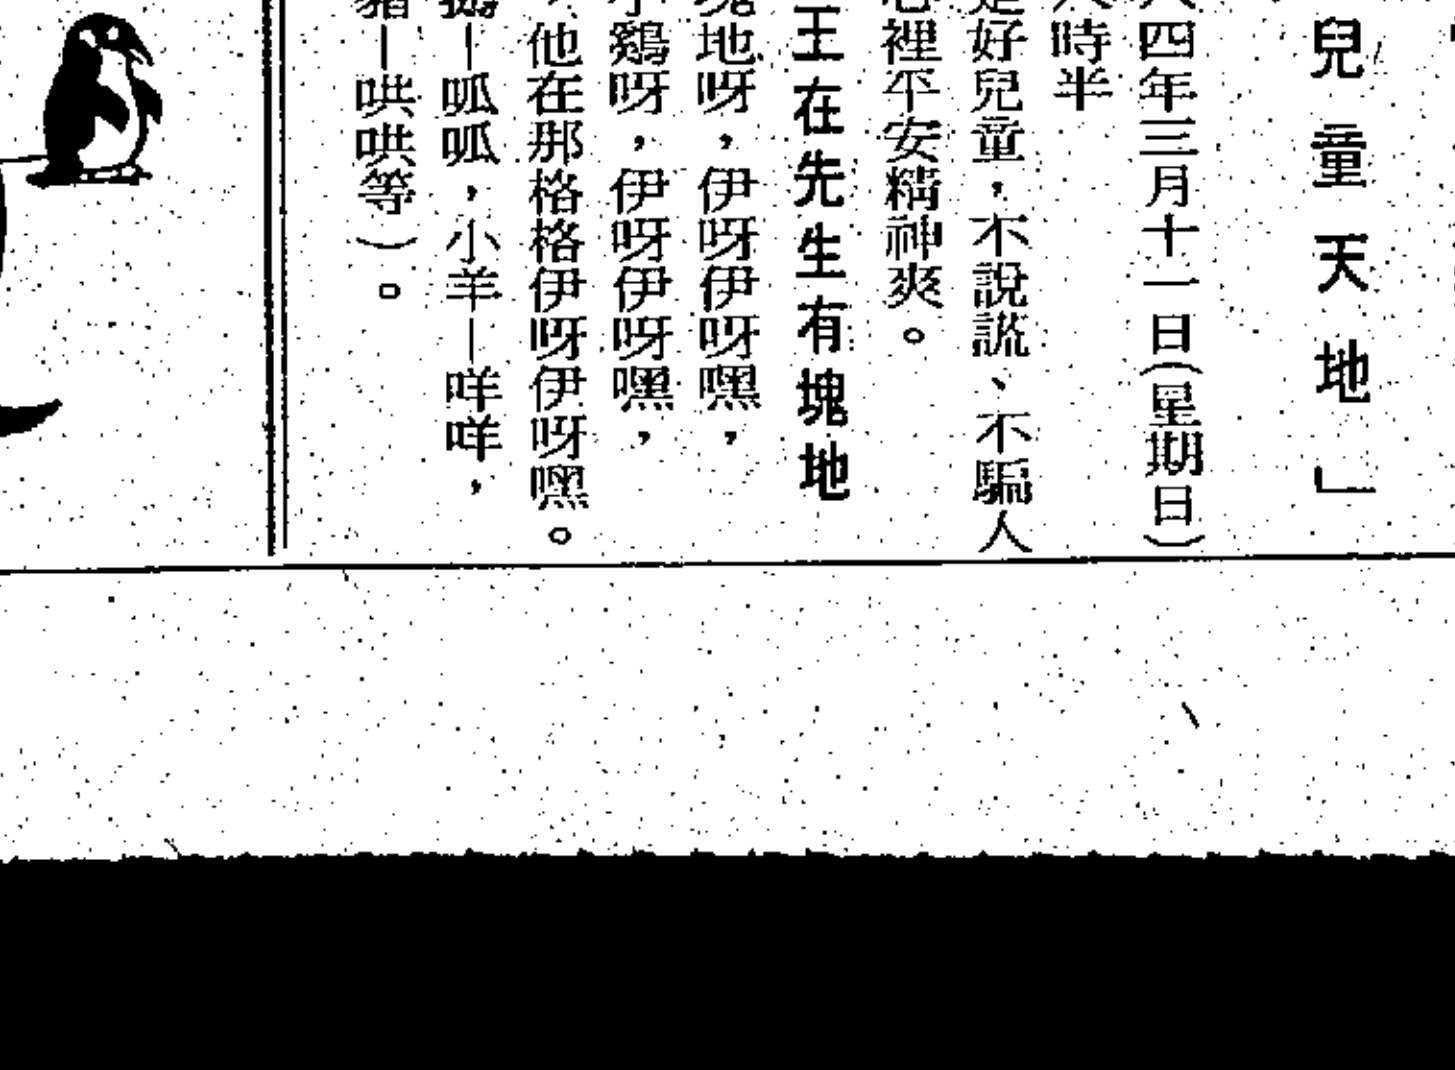 兒童天地」
四年三月十一日(星期日)
時半
好兒童，不說謊、不騙人
裡平安精神爽。
王在先生有塊地
地呀，伊呀伊呀嘿，
鷄呀，伊呀伊呀嘿，
他在那格格伊呀伊呀嘿。
－呱呱，小羊－咩咩，
－哄哄等）。